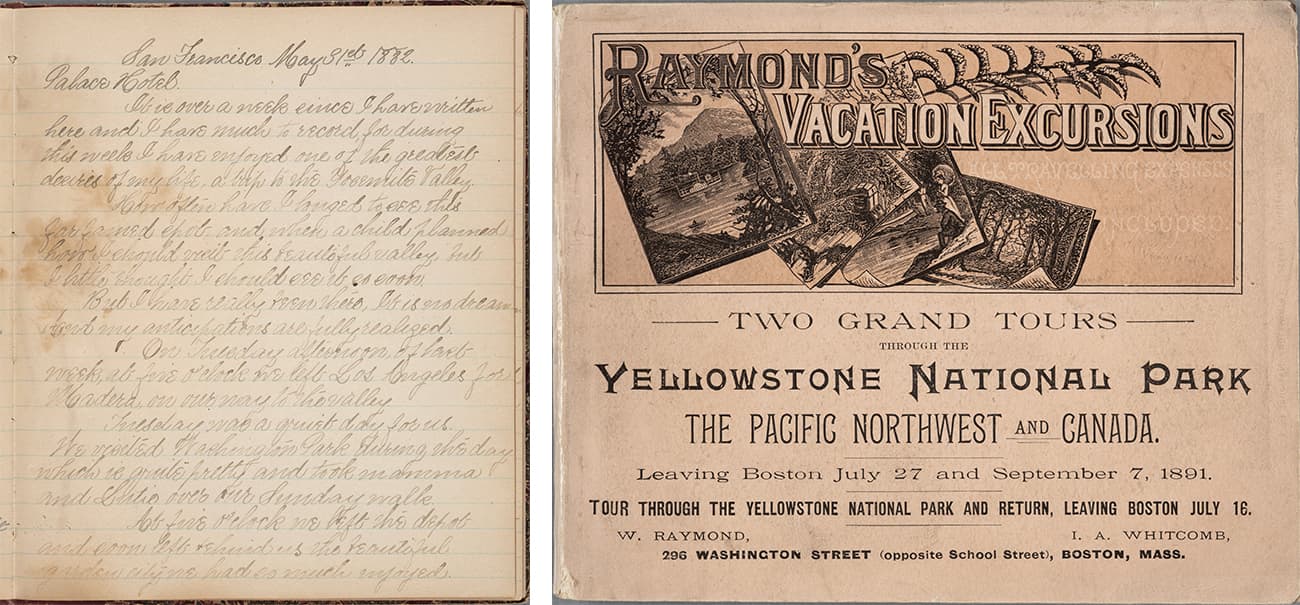 San Francisco May 31st 1882.
Palace Hotel.
It is over a week since I have written
here and I have much to record for during
this week I have enjoyed one of the greatest
desires of my life, a trip to the Yosemite Valley.
How often have I longed to see this
far famed spot, and when a child planned
how I should visit this beautiful valley, but
I little thought I should see it so soon.
But I have really been there, It is no dream
And my anticipations are fully realized.
On Tuesday afternoon, of last
week, at five o'clock we left Los Angeles for
Madera, on our way to the valley
Tuesday was a quiet day for us.
We visited Washington Park during the day
which is quite pretty and took mamma
and over our Sunday walk.
At five o'clock we left the depot
and soon left behind us the beautiful
garden city we had so much enjoyed.
RAYMOND'S
VACATION EXCURSIONS
ALL TRAVELLING EXPENSES
INCLUDED.
TWO GRAND TOURS
THROUGH THE
YELLOWSTONE NATIONAL PARK
THE PACIFIC NORTHWEST AND CANADA.
Leaving Boston July 27 and September 7, 1891.
TOUR THROUGH THE YELLOWSTONE NATIONAL PARK AND RETURN, LEAVING BOSTON JULY 16.
W. RAYMOND, I. A. WHITCOMB,
296 WASHINGTON STREET (opposite School Street), BOSTON, MASS.